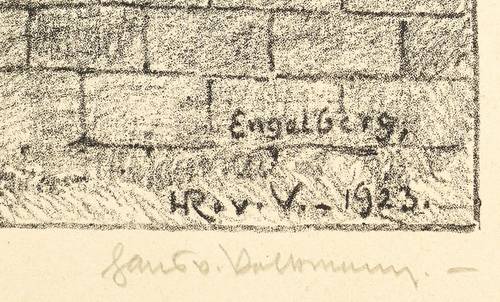 Engelberg,
HR.v.V.- 1923.
Hans v. Volkmann. -